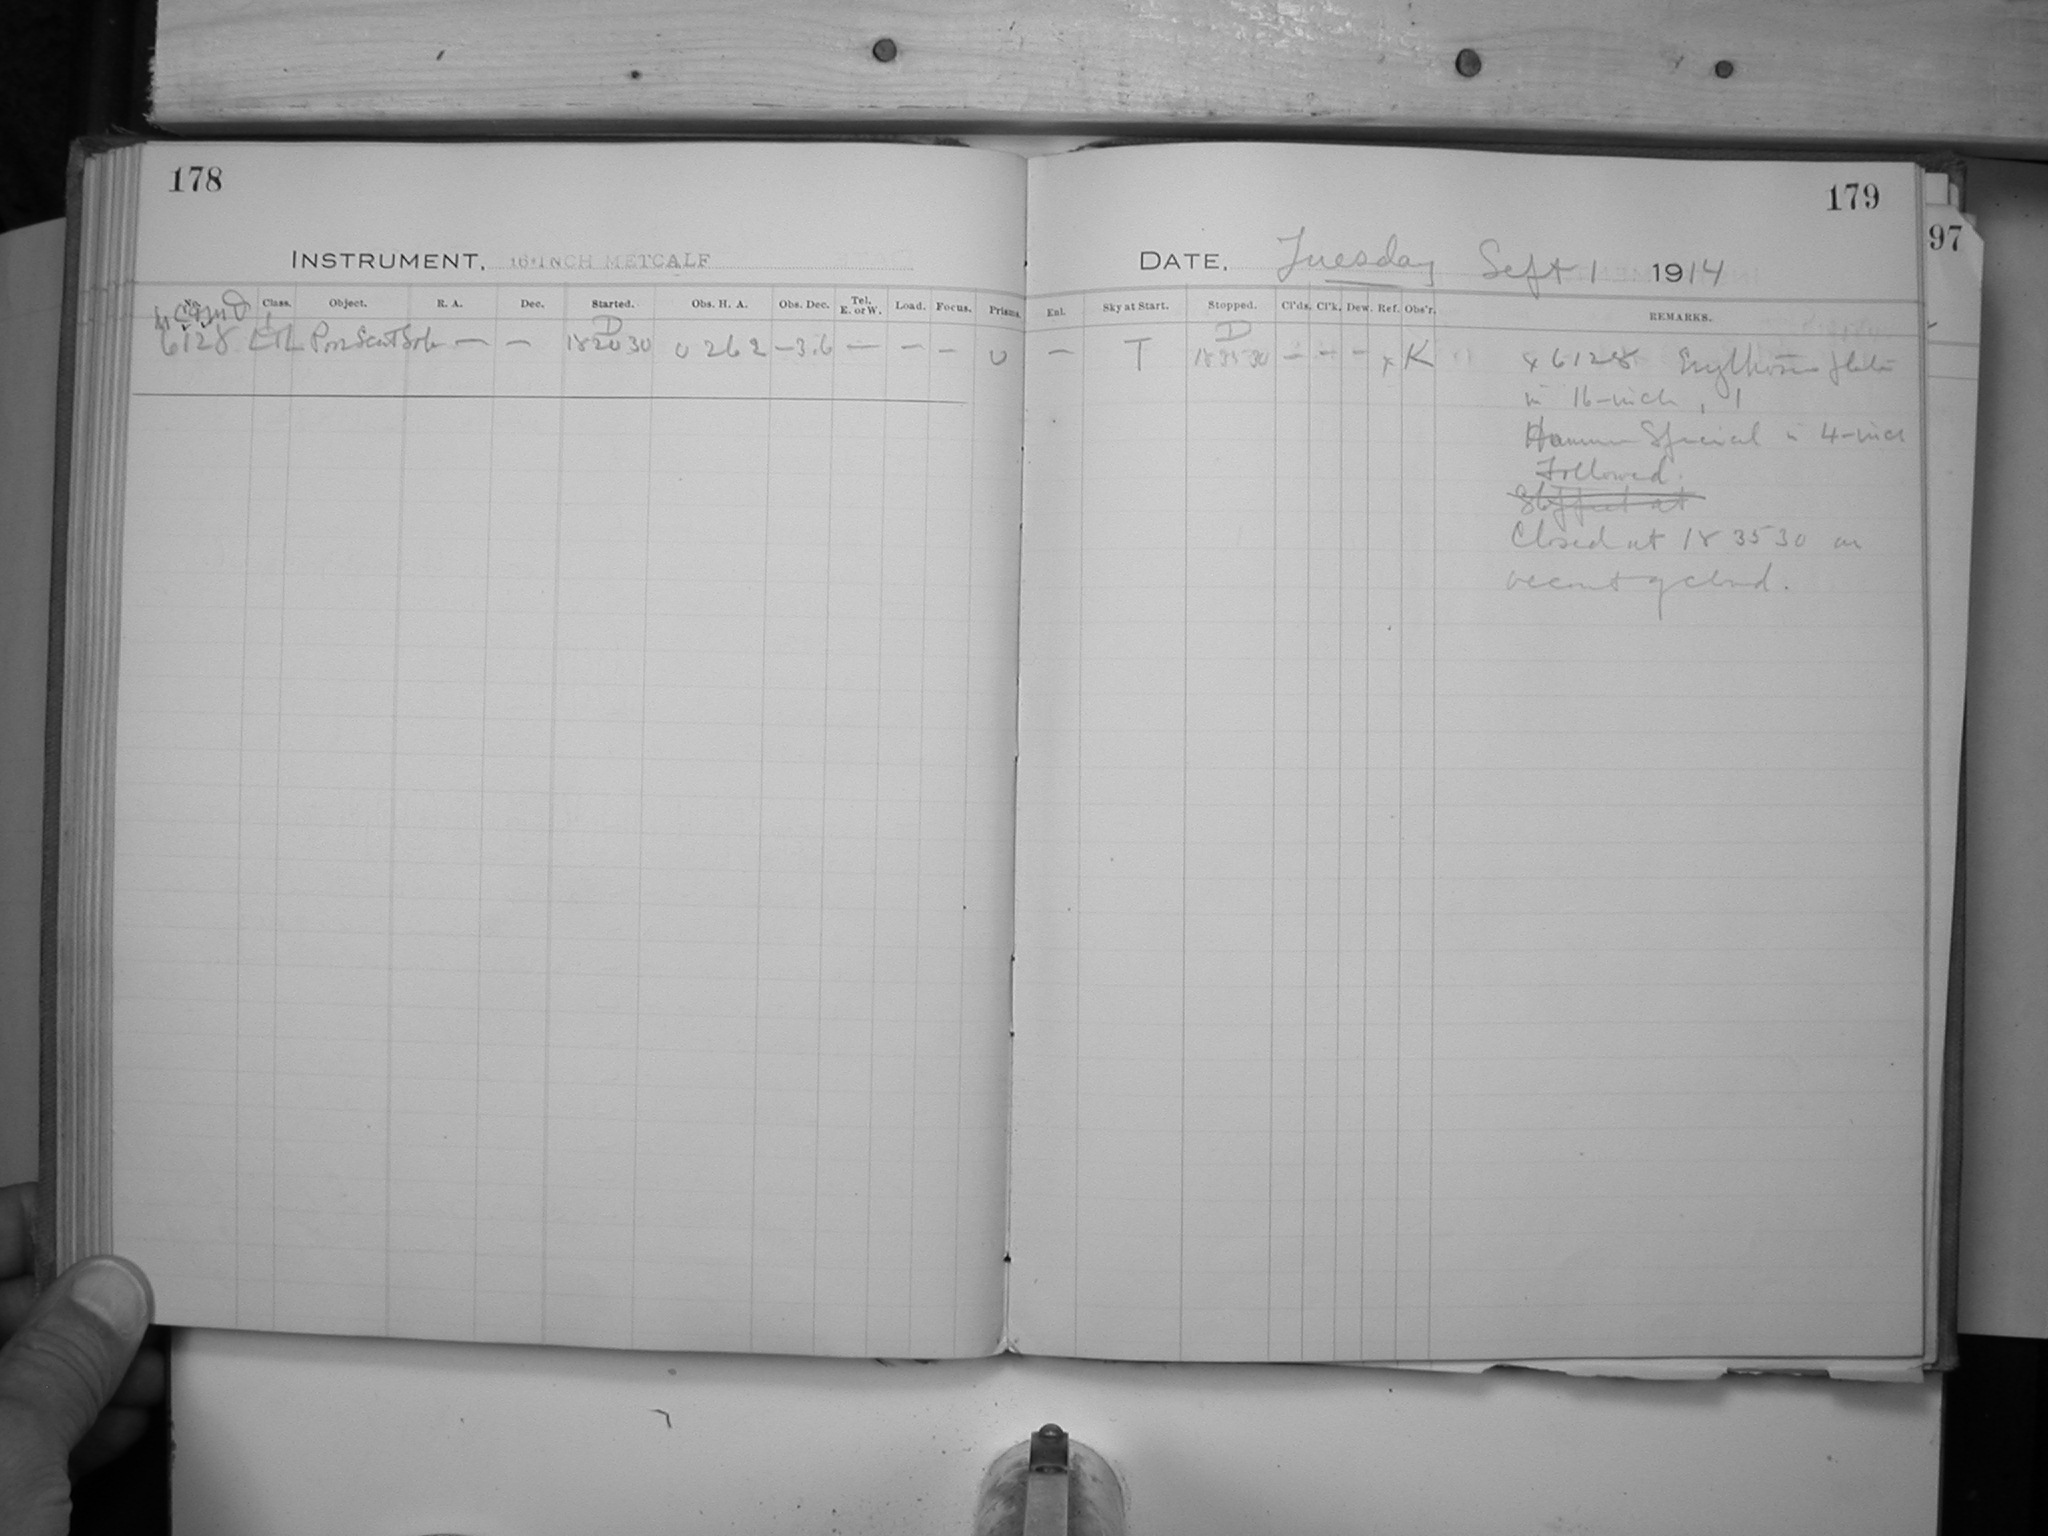 178
179
97
INSTRUMENT, 16-INCH METCALF
DATE, Tuesday Sept 1 1914
No. Class. Object. R. A. Dec. Started. Obs. H. A. Obs. Dec. Tel. E. or W. Load. Focus. Prisms. Enl. Sky at Start. Stopped. Cl'ds. Cl'k. Dew. Ref. Obs'r. REMARKS.
D D
6128 — — 18 20 30 0 26 2 -3.6 — — — 0 — T 18 35 30 — — — x K x 6128 plate
in 16-inch, 1
Hammer Special in 4-inch
Followed.
Closed at 18 35 30 on
account of cloud.